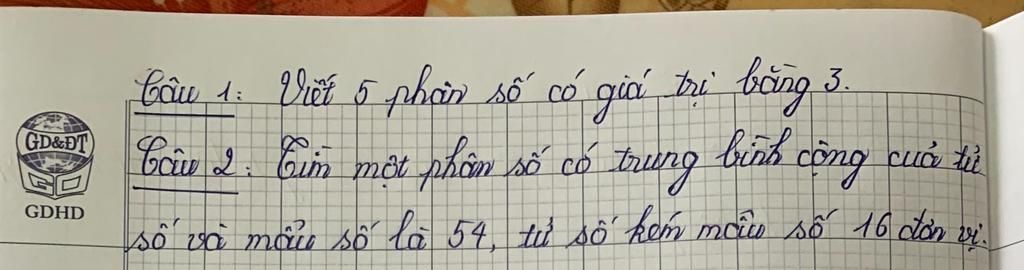 Câu 1: Viết 5 phân số có giá trị bằng 3.
GD&ĐT
Câu 2: Tìm một phân số có trung bình cộng của tử
GDHD
số và mẫu số là 54, tử số kém mẫu số 16 đơn vị.